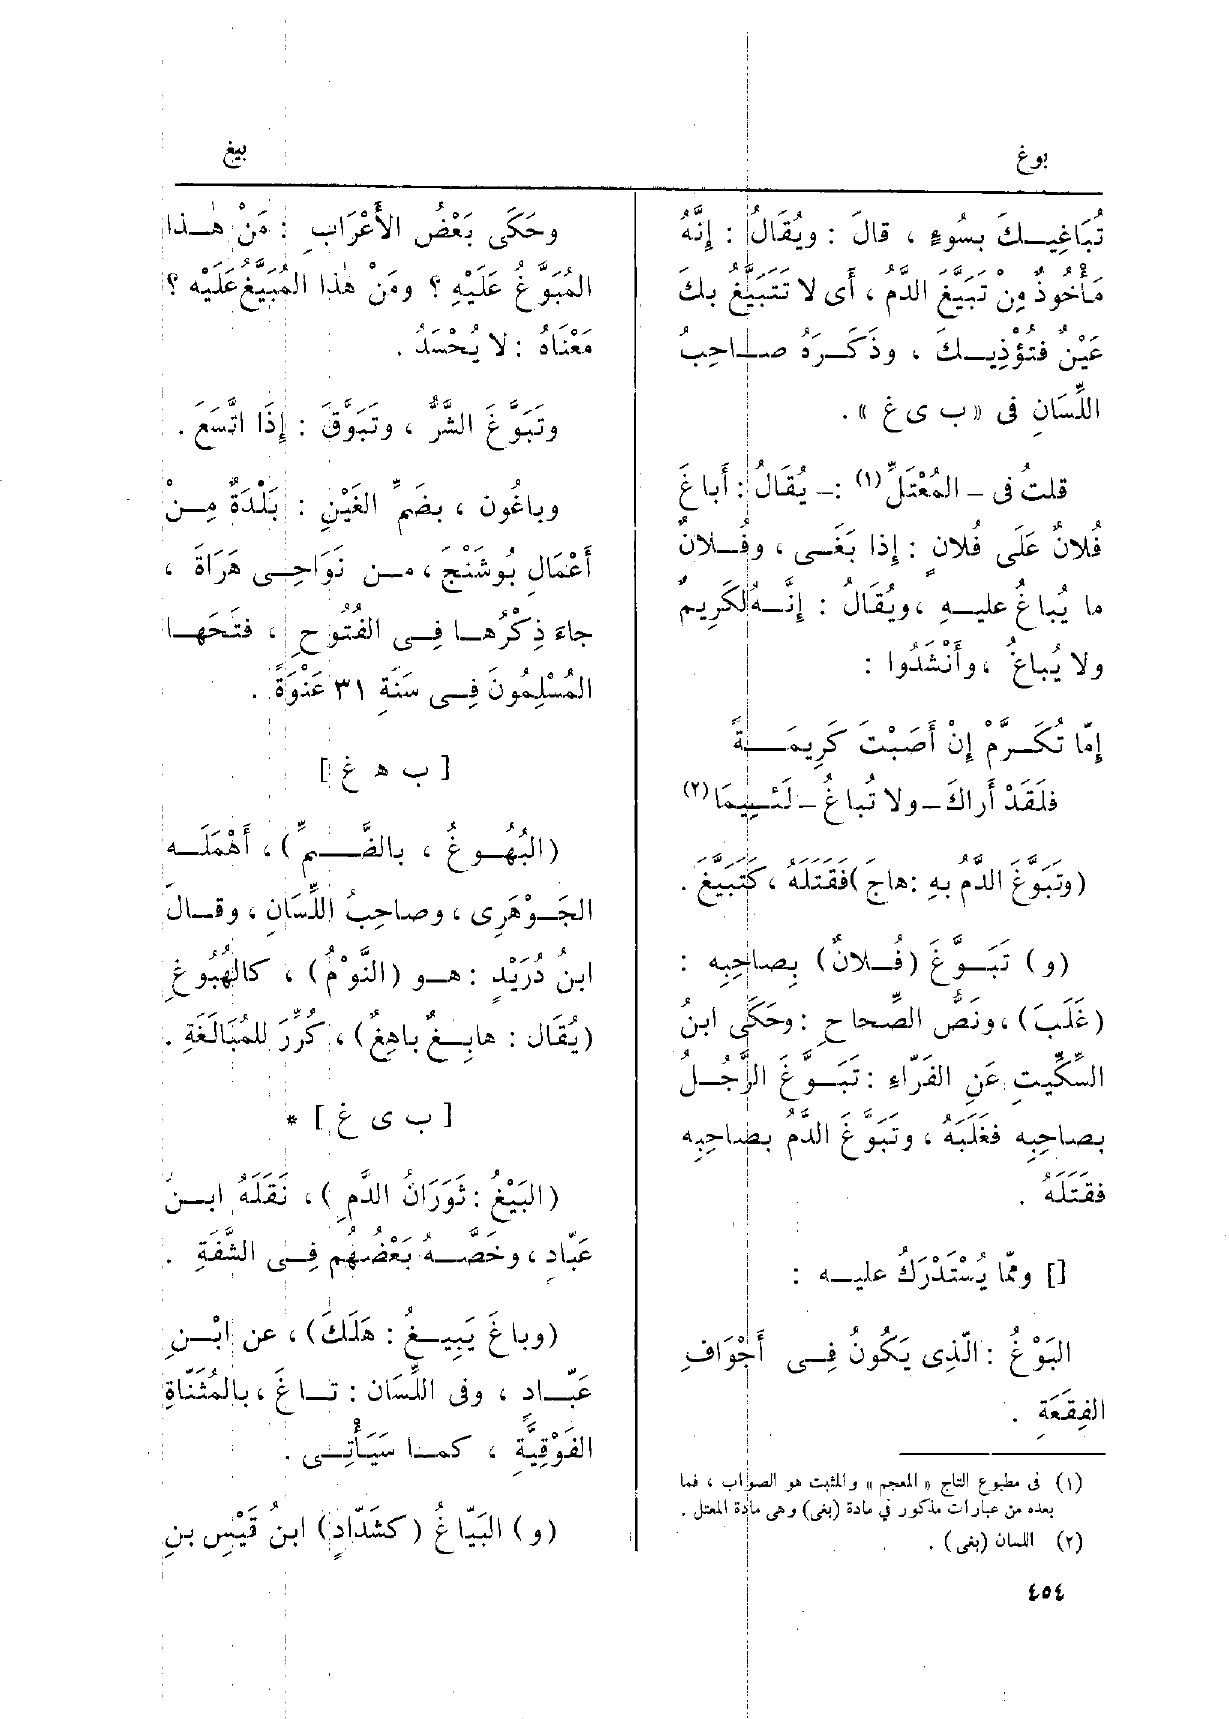 بوغ
بيغ
تُبَاغِيكَ بِسُوءٍ ، قالَ : ويُقَالُ : إِنَّهُ
مَأْخُوذٌ مِنْ تَبَيَّغَ الدَّمُ ، أَى لا تَتَبَيَّغُ بِكَ
عَيْنٌ فتُؤْذِيكَ ، وذَكَرَهُ صاحِبُ
اللِّسَانِ فى « ب ى غ » .
قلتُ فى – المُعْتَلِّ (١) :– يُقَالُ : أَباغَ
فُلانٌ عَلَى فُلانٍ : إذا بَغَى ، وفُلانٌ
ما يُباغُ عليهِ ، ويُقَالُ : إِنَّهُ لكَرِيمٌ
ولا يُباغُ ، وأَنْشَدُوا :
إِمّا تُكَرَّمْ إِنْ أَصَبْتَ كَرِيمَةً
فلَقَدْ أَراكَ – ولا تُباغُ – لَئِيمَا (٢)
( وتَبَوَّغَ الدَّمُ بِهِ : هاجَ ) فَقَتَلَهُ ، كتَبَيَّغَ .
( و ) تَبَوَّغَ ( فُلانٌ ) بِصاحِبِه :
( غَلَبَ ) ، ونَصُّ الصِّحاحِ : وحَكَى ابنُ
السِّكِّيتِ عَنِ الفَرّاءِ : تَبَوَّغَ الرَّجُلُ
بصاحِبِه فغَلَبَهُ ، وتَبَوَّغَ الدَّمُ بصاحِبِه
فقَتَلَهُ .
[] ومّما يُسْتَدْرَكُ عليه :
البَوْغُ : الَّذِى يَكُونُ فِى أَجْوَافِ
الفِقَعَةِ .
(١) فى مطبوع التاج « المعجم » والمثبت هو الصواب ، فما
بعده من عبارات مذكور فى مادة (بغى) وهى مادة المعتل .
(٢) اللسان (بغى) .
٤٥٤
وحَكَى بَعْضُ الأَعْرَابِ : مَنْ هٰذا
المُبَوَّغُ عَلَيْهِ ؟ ومَنْ هٰذا المُبَيَّغُ عَلَيْه ؟
مَعْنَاهُ : لا يُحْسَدُ .
وتَبَوَّغَ الشَّرُّ ، وتَبَوَّقَ : إِذَا اتَّسَعَ .
وباغُون ، بضَمِّ الغَيْنِ : بَلْدَةٌ مِنْ
أَعْمَالِ بُوشَنْجَ ، من نَوَاحِى هَرَاةَ ،
جاءَ ذِكْرُها فِى الفُتُوحِ ، فتَحَها
المُسْلِمُونَ فِى سَنَةِ ٣١ عَنْوَةً .
[ ب ه غ ]
( البُهُوغُ ، بالضَّمِّ ) ، أَهْمَلَه
الجَوْهَرِى ، وصاحِبُ اللِّسَانِ ، وقالَ
ابنُ دُرَيْدٍ : هو ( النَّوْمُ ) ، كالهُبُوغِ
( يُقَال : هابِغٌ باهِغٌ ) ، كُرِّرَ للمُبَالَغَةِ .
[ ب ى غ ] *
( البَيْغُ : ثَوَرَانُ الدَّمِ ) ، نَقَلَهُ ابنُ
عَبّادٍ ، وخَصَّهُ بَعْضُهُم فِى الشَّفَةِ .
( وباغَ يَبِيغُ : هَلَكَ ) ، عن ابْنِ
عَبّادٍ ، وفى اللِّسَان : تاغَ ، بالمُثَنّاةِ
الفَوْقِيَّةِ ، كما سَيَأْتِى .
( و ) البَيّاغُ ( كشَدّادٍ ) ابنُ قَيْسِ بنِ